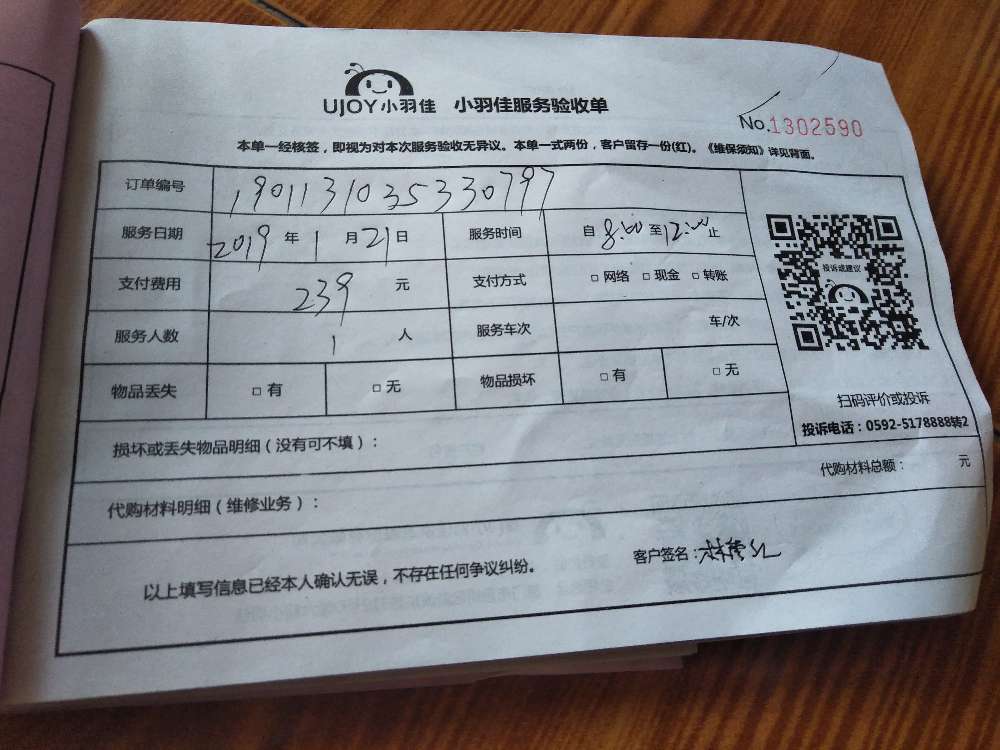 UJOY小羽佳 小羽佳服务验收单
No.1302590
本单一经核签，即视为对本次服务验收无异议。本单一式两份，客户留存一份(红)。《维保须知》详见背面。
订单编号 190113103533079​7
服务日期 2019 年 1 月 21 日 服务时间 自 8:00 至 12:00 止
投诉或建议
支付费用 239 元 支付方式 □ 网络 □ 现金 □ 转账
服务人数 1 人 服务车次 车/次
物品丢失 □ 有 □ 无 物品损坏 □ 有 □ 无
扫码评价或投诉
投诉电话：0592-5178888转2
损坏或丢失物品明细（没有可不填）：
代购材料明细（维修业务）： 代购材料总额： 元
以上填写信息已经本人确认无误，不存在任何争议纠纷。 客户签名：